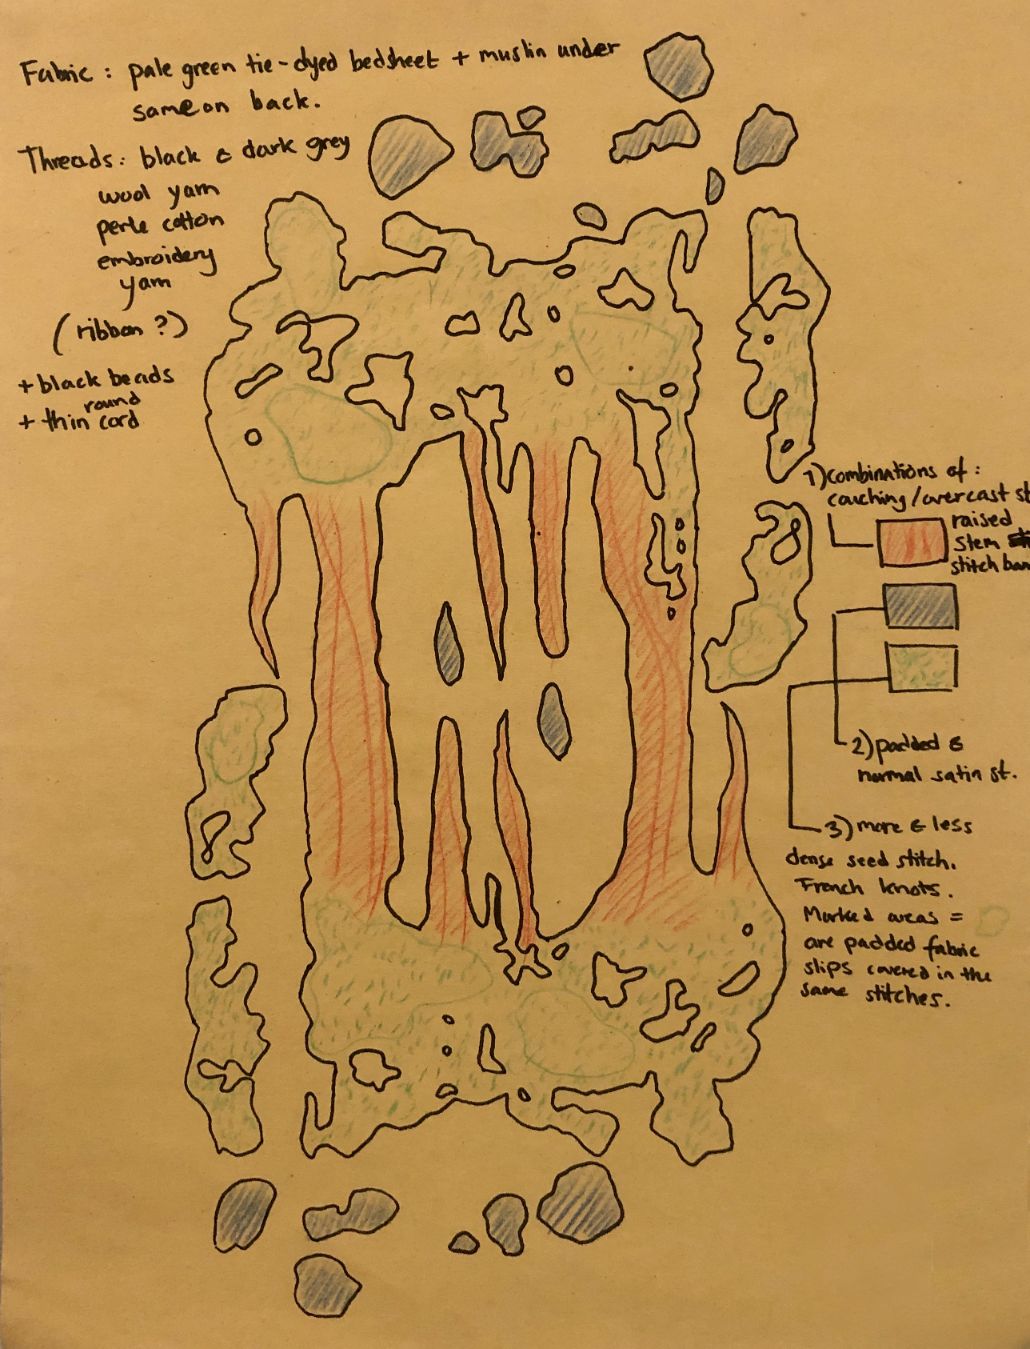 Fabric : pale green tie-dyed bedsheet + muslin under
same on back.
Threads: black & dark grey
wool yarn
perle cotton
embroidery
yarn
(ribbon ?)
+ black beads
round
+ thin cord
1) combinations of :
couching/overcast st
raised
stem
stitch ban
2) padded &
normal satin st.
3) more & less
dense seed stitch.
French knots.
Marked areas =
are padded fabric
slips covered in the
same stitches.